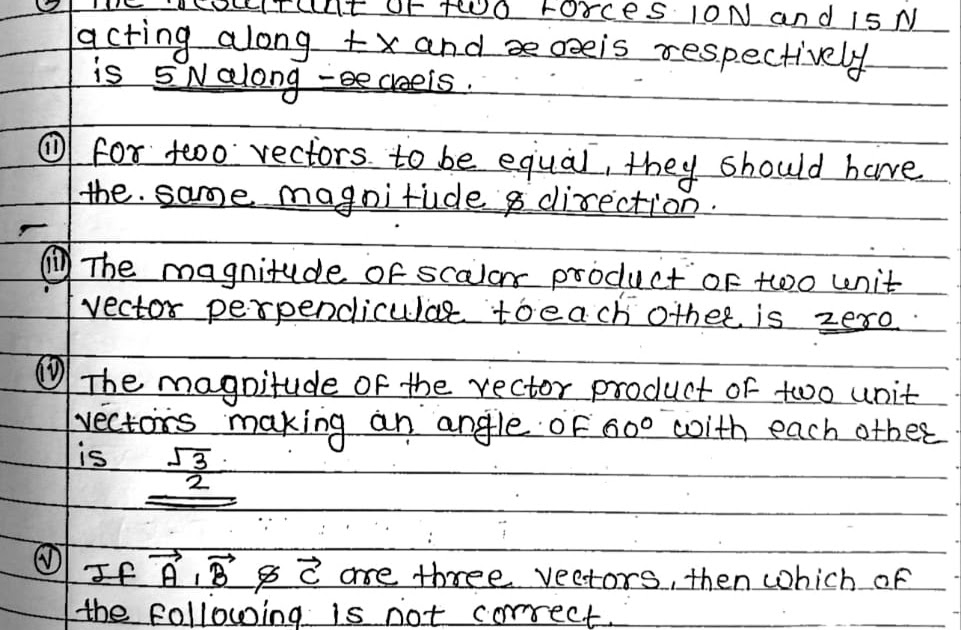 The resultant of two Forces 10N and 15N
acting along +x and -x axis respectively
is 5N along -x axis.
(ii) for two vectors to be equal, they should have
the same magnitude & direction.
(iii) The magnitude of scalar product of two unit
vector perpendicular to each other is zero.
(iv) The magnitude of the vector product of two unit
vectors making an angle of 60° with each other
is √3/2.
(v) If A⃗, B⃗ & C⃗ are three vectors, then which of
the following is not correct.